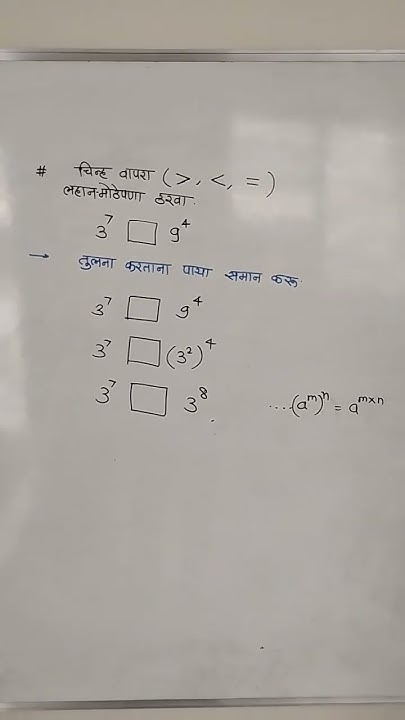 # चिन्ह वापरा (>, <, =)
लहान-मोठेपणा ठरवा.
3⁷ □ 9⁴
→ तुलना करताना पाया समान करू.
3⁷ □ 9⁴
3⁷ □ (3²)⁴
3⁷ □ 3⁸ ....(aᵐ)ⁿ = aᵐˣⁿ